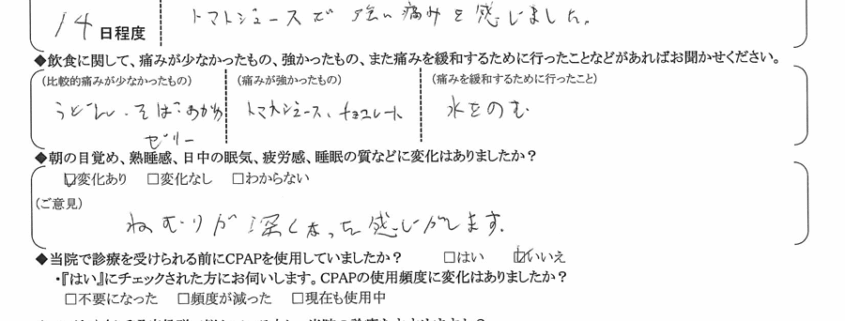 トマトジュースで強い痛みを感じました。
14日程度
◆飲食に関して、痛みが少なかったもの、強かったもの、また痛みを緩和するために行ったことなどがあればお聞かせください。
(比較的痛みが少なかったもの) (痛みが強かったもの) (痛みを緩和するために行ったこと)
うどん・そば・おかゆ トマトジュース、チョコレート 水をのむ
ゼリー
◆朝の目覚め、熟睡感、日中の眠気、疲労感、睡眠の質などに変化はありましたか?
☑変化あり □変化なし □わからない
(ご意見)
ねむりが深くなった感じがします。
◆当院で診療を受けられる前にCPAPを使用していましたか? □はい ☑いいえ
・『はい』にチェックされた方にお伺いします。CPAPの使用頻度に変化はありましたか?
□不要になった □頻度が減った □現在も使用中